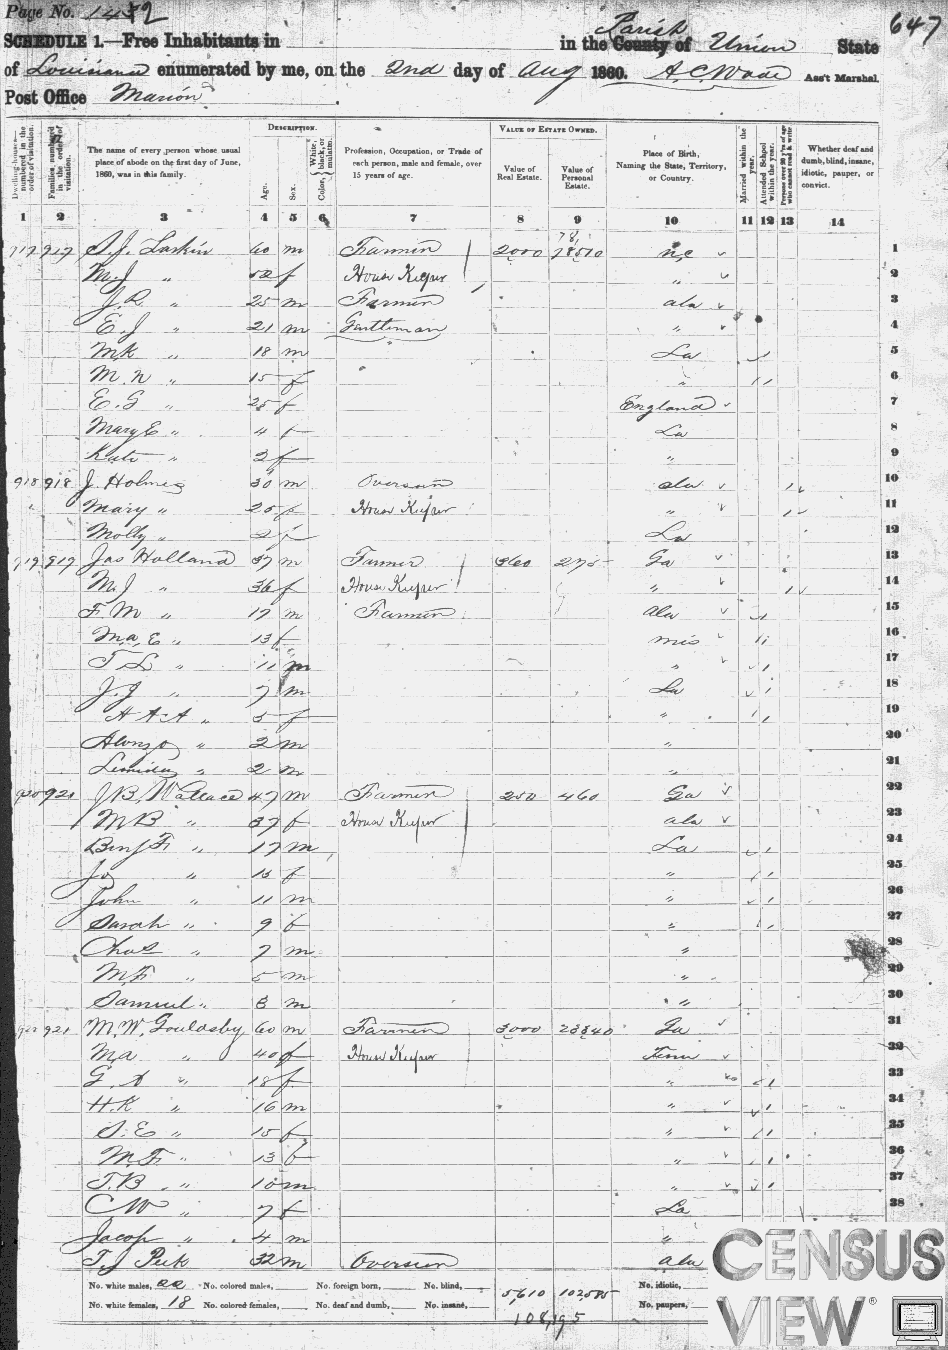 Page No. 1452
647
SCHEDULE 1.—Free Inhabitants in in the County Parish of Union State
of Louisiana enumerated by me, on the 2nd day of Aug 1860. A.C. Wade Ass't Marshal.
Post Office Marion
Dwelling-houses numbered in the order of visitation. Families numbered in the order of visitation. The name of every person whose usual place of abode on the first day of June, 1860, was in this family. DESCRIPTION. Age. Sex. Color, White, black, or mulatto. Profession, Occupation, or Trade of each person, male and female, over 15 years of age. VALUE OF ESTATE OWNED. Value of Real Estate. Value of Personal Estate. Place of Birth, Naming the State, Territory, or Country. Married within the year. Attended School within the year. Persons over 20 y'rs of age who cannot read & write. Whether deaf and dumb, blind, insane, idiotic, pauper, or convict.
1 2 3 4 5 6 7 8 9 10 11 12 13 14
917 917 S.J. Larkin 60 m Farmer 2000 78510 n,c 1
M.J " f House Keeper " 2
J.R. " 25 m Farmer ala 3
E.J " 21 m Gentleman " 4
M.K " 18 m La 5
M.N " 15 f " 6
E.G " 25 f England 7
Mary E " 4 f La 8
Kate " 2 f " 9
918 918 J Holmes 30 m Overseer ala 10
Mary " 25 f House Keeper " 11
Molly " 2 f La 12
919 919 Jas Holland 37 m Farmer 360 275 Ga 13
M.J " 36 f House Keeper " 14
F.M " 17 m Farmer Ala 15
M.a, E " 13 f mis 16
T L " 11 m " 17
J.J " 7 m La 18
H A A " 5 f " 19
Alonzo " 2 m " 20
" 2 m " 21
920 921 J.B. Wallace 47 m Farmer 250 460 Ga 22
M B " 37 f House Keeper ala 23
Benj F. " 17 m La 24
Jo " 13 f 25
John " 11 m " 26
Sarah " 9 f " 27
Chas " 7 m " 28
M.F. " 5 m " 29
Samuel " 3 m " 30
921 M.W. Gouldsby 60 m Farmer 3000 23340 Ga 31
M.a " 40 f House Keeper Tenn 32
G. A " 18 f " 33
H.K " 16 m " 34
S.E " 15 f " 35
M.F. " 13 f " 36
T.B " 10 m " 37
C W " 7 f La 38
Jacop " 4 m "
T.J Peek 32 m Overseer ala
No. white males, 22 No. colored males, No. foreign born, No. blind, No. idiotic,
No. white females, 18 No. colored females, No. deaf and dumb, No. insane, 5,610 102,585 No. paupers,
108,195
CENSUS
VIEW®